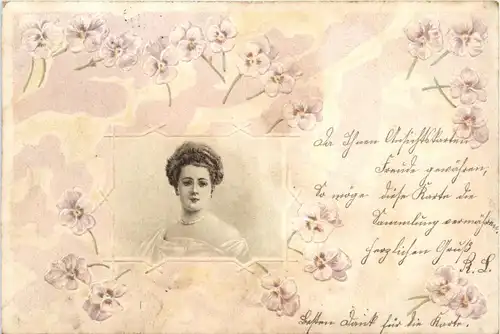 Da Ihnen Ansichtskarten
Freude gewähren,
So möge diese Karte die
Sammlung vermehren.
Herzlichen Gruß
R. L.
Besten Dank für die Karte.